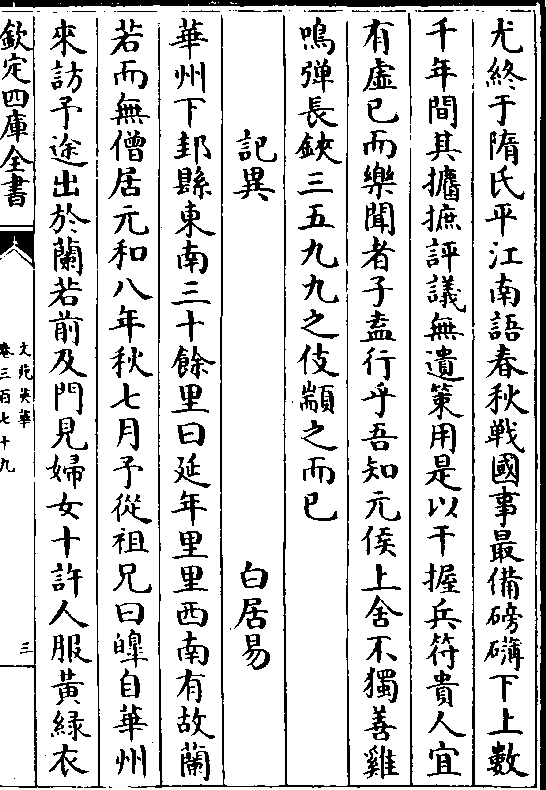 尤終于隋氏平江南語春秋戰國事最備磅礴下上數
千年間其攟摭評議無遺策用是以干握兵符貴人宜
有虛已而樂聞者子盍行乎吾知元侯上舍不獨善雞
鳴彈長鋏三五九九之伎顓之而已
記異 白居易
華州下邽縣東南三十餘里曰延年里里西南有故蘭
若而無僧居元和八年秋七月予從祖兄曰皥自華州
來訪予途出於蘭若前及門見婦女十許人服黃緑衣
欽定四庫全書
文苑英華
卷三百七十九
三